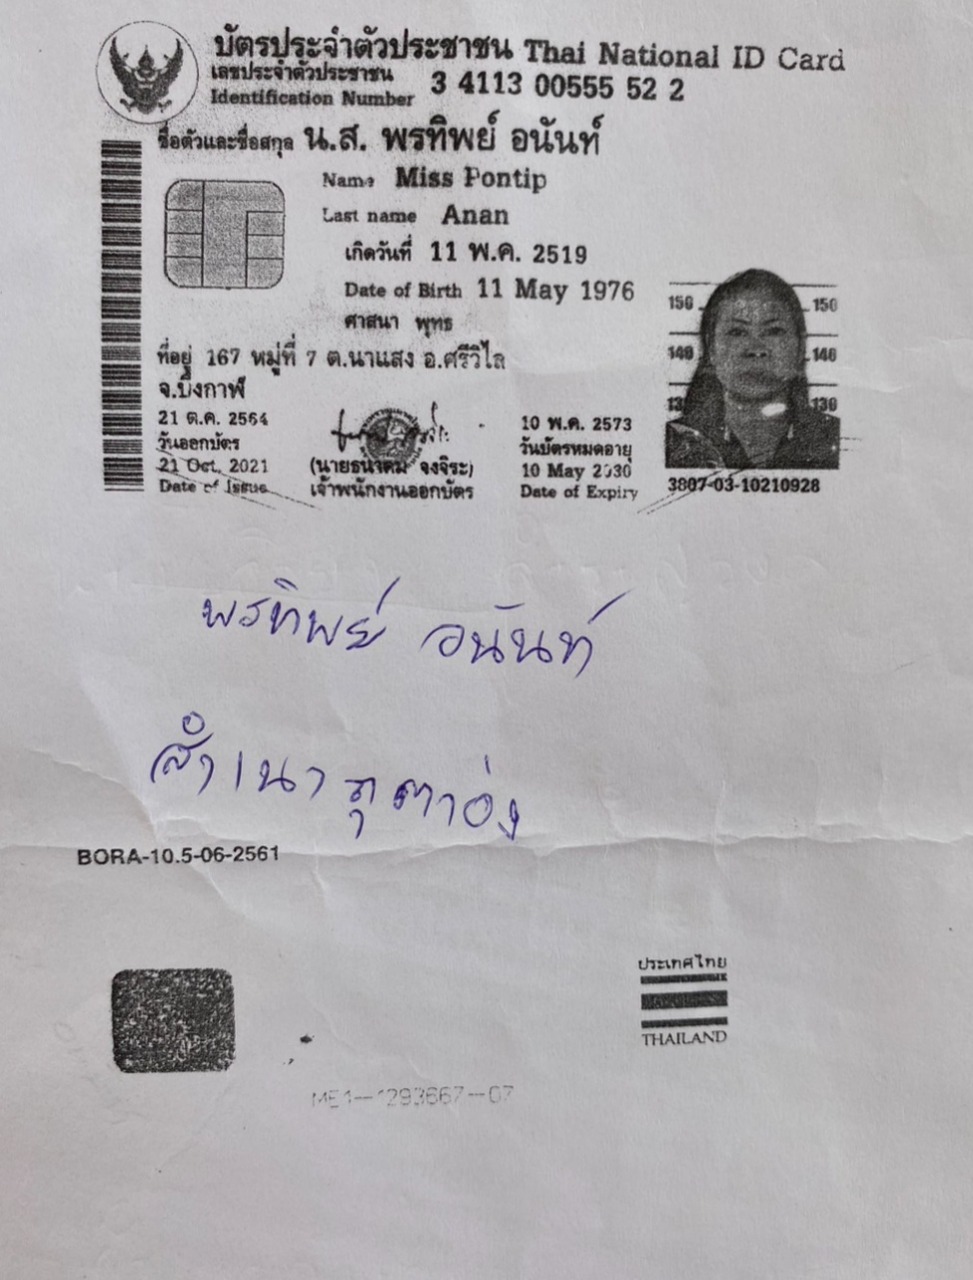 บัตรประจำตัวประชาชน Thai National ID Card
เลขประจำตัวประชาชน
Identification Number 3 4113 00555 52 2
ชื่อตัวและชื่อสกุล น.ส. พรทิพย์ อนันท์
Name Miss Pontip
Last name Anan
เกิดวันที่ 11 พ.ค. 2519
Date of Birth 11 May 1976
ศาสนา พุทธ
ที่อยู่ 167 หมู่ที่ 7 ต.นาแสง อ.ศรีวิไล
จ.บึงกาฬ
21 ต.ค. 2564
วันออกบัตร
21 Oct. 2021
Date of Issue
(นายธนาคม จงจิระ)
เจ้าพนักงานออกบัตร
10 พ.ค. 2573
วันบัตรหมดอายุ
10 May 2030
Date of Expiry
150 150
140 140
130 130
3807-03-10210928
พรทิพย์ อนันท์
สำเนา
BORA-10.5-06-2561
ประเทศไทย
THAILAND